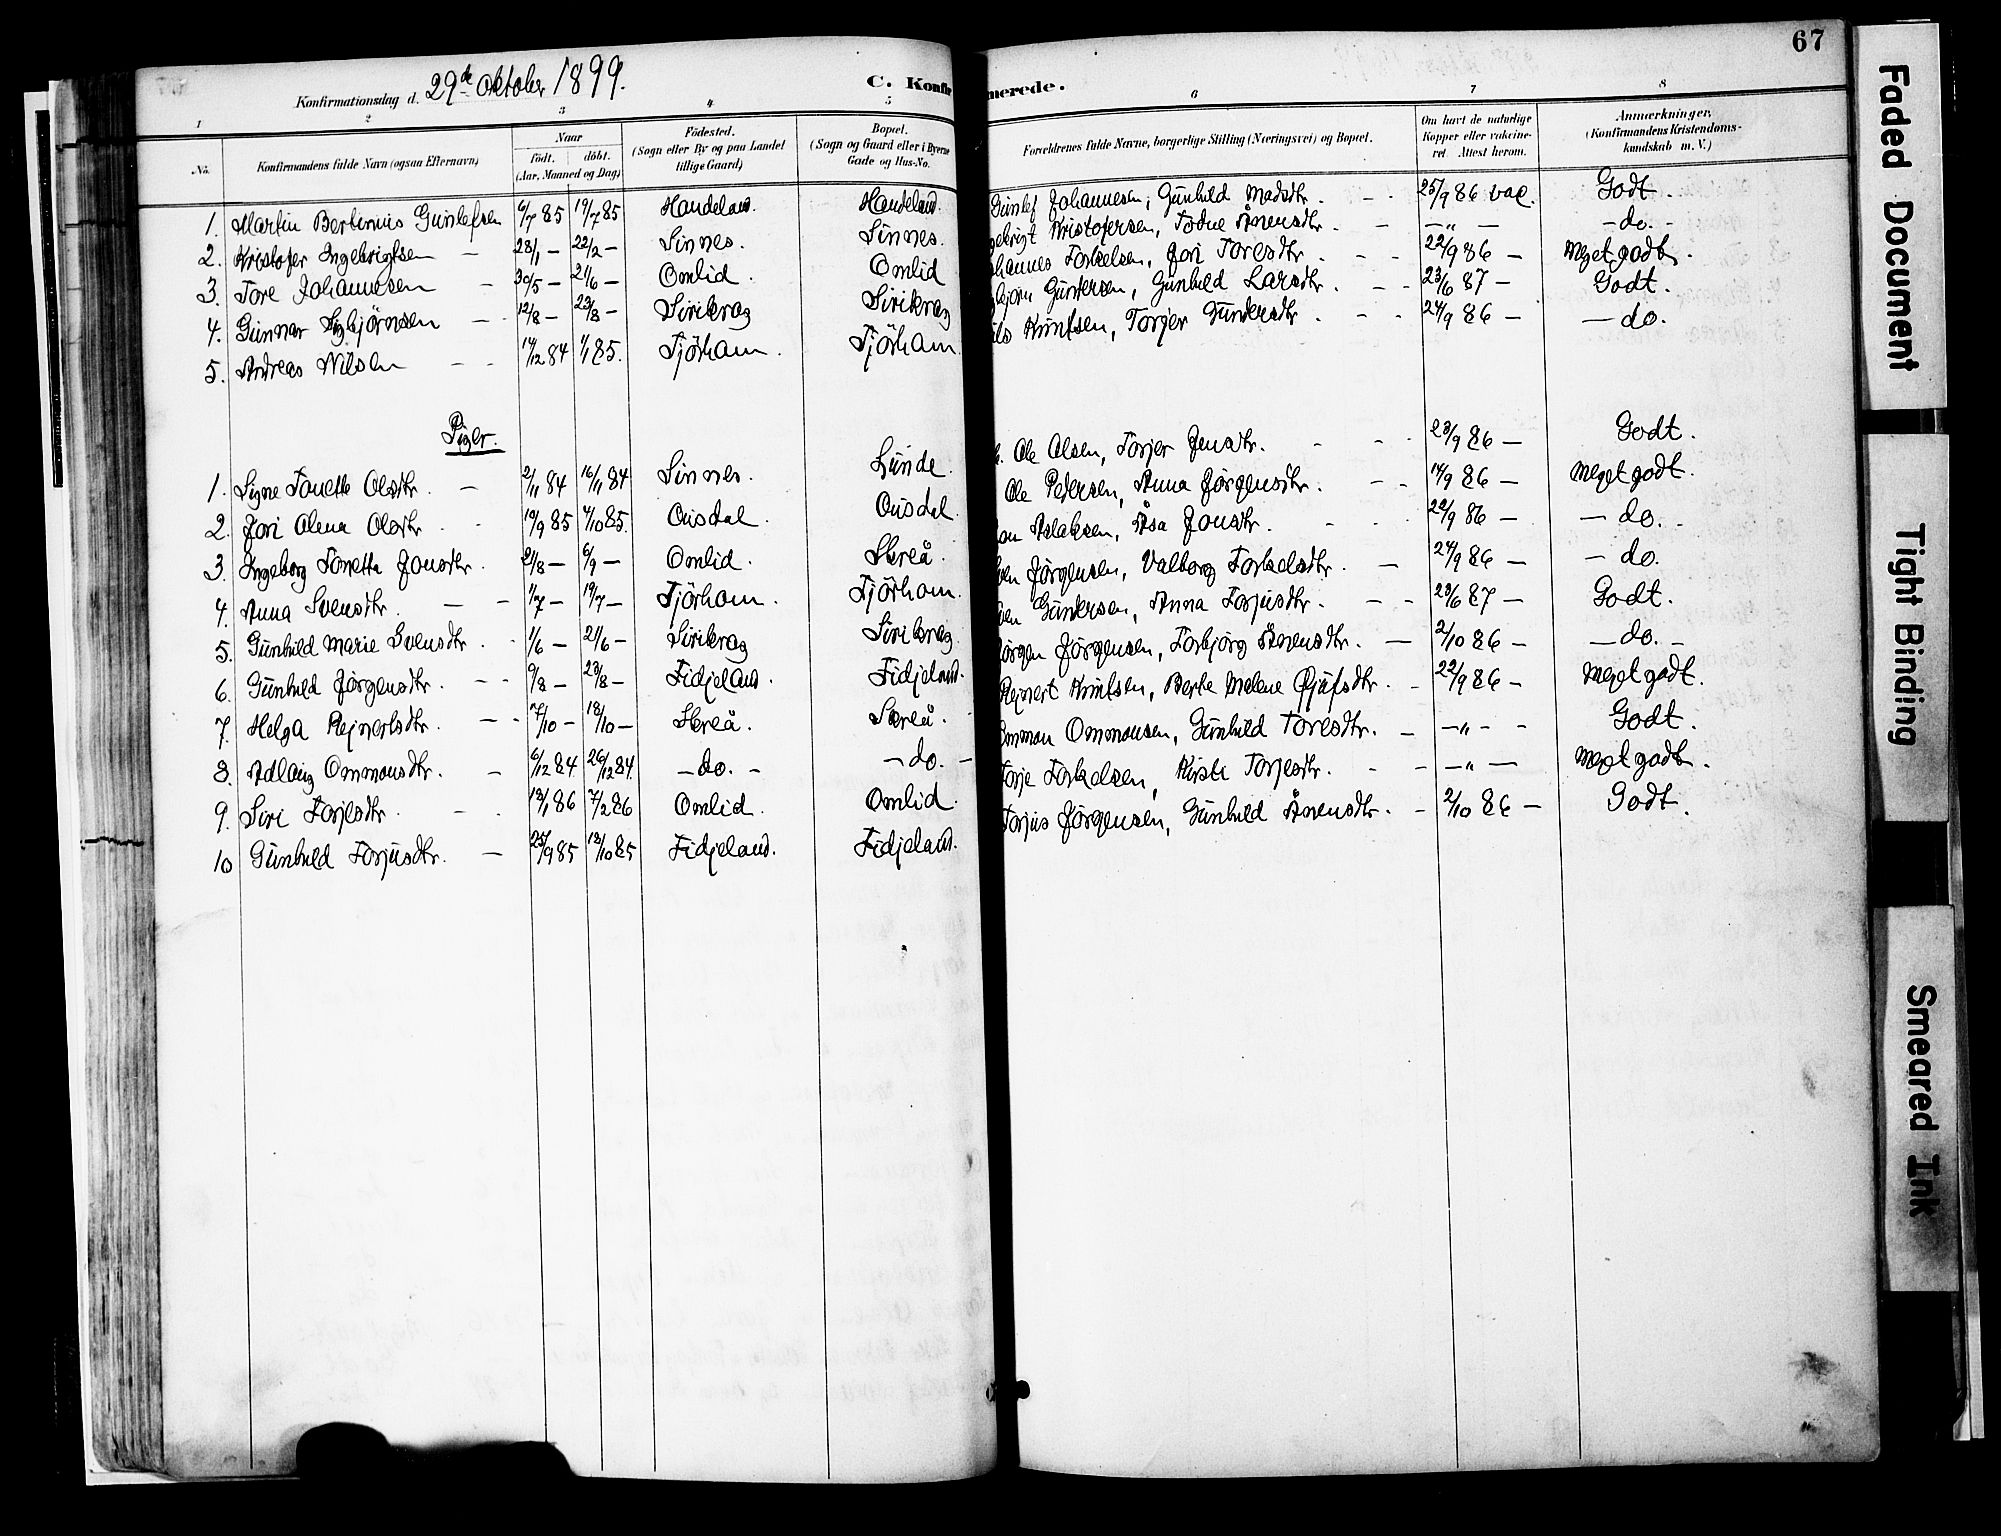 67
Konfirmationsdag d. 29de Oktober 1899.
C. Konfir
merede.
1 2 3 4 5 6 7 8
No.
Konfirmandens fulde Navn (ogsaa Efternavn)
Naar
født. døbt.
(Aar, Maaned og Dag)
Fødested.
(Sogn eller By og paa Landet
tillige Gaard)
Bopæl.
(Sogn og Gaard eller i Byerne
Gade og Hus-No.
Forældrenes fulde Navne, borgerlige Stilling (Næringsvei) og Bopæl.
Om havt de naturlige
Kopper eller vakcine-
ret. Attest herom.
Anmærkninger.
(Konfirmandens Kristendoms-
kundskab m. V.)
1. Martin Bertinius Gunlefsen 6/7 85 19/7 85 Haudeland. Haudeland. Gunlef Johannesen, Gunhild Madsdtr. - - 25/9 86 vac. Godt.
2. Kristofer Ingebrigtsen - 28/1 - 22/2 - Sinnes. Sinnes. gebrigt Kristofersen, Todne Aanensdtr. - -"- - do. -
3. Tore Johannesen - 30/5 - 21/6 - Omlid. Omlid hannes Torkelsen, Jori Toresdtr. - - 22/9 86 - Meget godt.
4. Gunnar Sigbjörnsen - - 12/8 - 23/8 - Sirikrog Sirikrog bjørn Gundersen, Gunhild Larsdtr. - - 23/6 87 - Godt.
5. Andreas Nilsen - - 14/12 84 1/1 85. Tjörhom. Tjörhom. ils Knutsen, Torjer Gundersdtr. - - 24/9 86 - - do.
Piger.
1. Signe Tonette Olsdtr. - 2/11 84 16/11 84 Sinnes. Lunde. Ole Olsen, Torjer Jensdtr. - - - 23/9 86 - Godt.
2. Jori Olena Olsdtr. - 19/9 85 4/10 85. Ousdal. Ousdal. Ole Pedersen, Anna Jørgensdtr. - - 14/9 86 - Meget godt.
3. Ingeborg Tonetta Jonsdtr. - 21/8 - 6/9 - Omlid. Skreå. on Aslaksen, Åsa Jonsdtr. - - - 22/9 86 - - do. -
4. Anna Svensdtr. - - 1/7 - 19/7 - Tjörhom. Tjörhom. ven Jørgensen, Valborg Torkelsdtr. - 24/9 86 - - do.
5. Gunhild Marie Svensdtr. - 1/6 - 21/6 - Sirikrog Sirikrog. ven Gundersen, Anna Torjusdtr. - - 23/6 87 - Godt.
6. Gunhild Jørgensdtr. - - 9/8 - 23/8 - Fidjeland. Fidjeland. ørgen Jørgensen, Torbjørg Aanensdtr. - 2/10 86 - - do. -
7. Helga Rejnertsdtr. - - 7/10 - 18/10 - Skreå. Skreå. Rejnert Knutsen, Berte Malene Gjufsdtr. - 22/9 86 - Meget godt.
8. Adlaug Ommonsdtr. - 6/12 84. 26/12 84. - do. - - do. - Ommon Ommonsen, Gunhild Toresdtr. - -"- - Godt.
9. Siri Torjesdtr. - - 13/1 86 7/2 86 Omlid. Omlid. Torje Torkelsen, Kirsti Torjesdtr. - - -"- - Meget godt.
10 Gunhild Torjusdtr. - 25/9 85 18/10 85 Fidjeland. Fidjeland. Torjus Jørgensen, Gunhild Aanensdtr. - - 2/10 86 - Godt.
Faded Document
Tight Binding
Smeared Ink